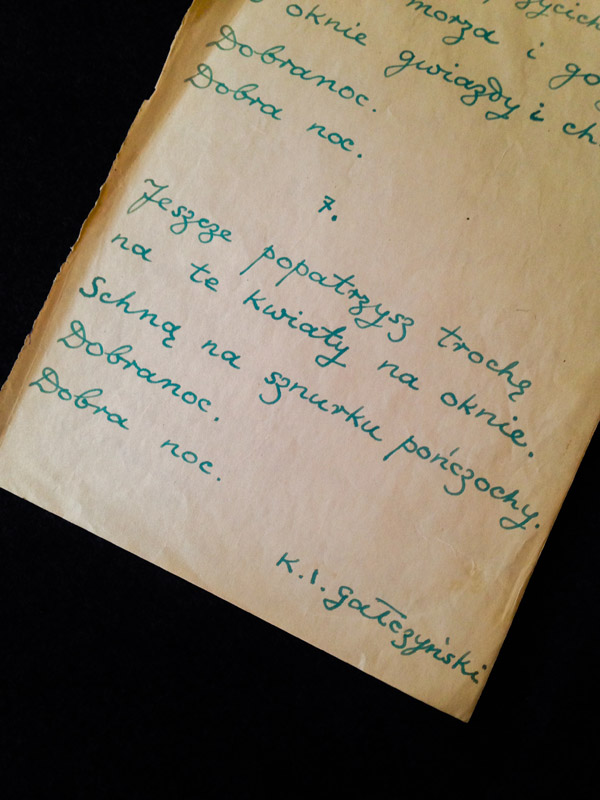 morza i
oknie gwiazdy i
Dobranoc.
Dobra noc.
7.
Jeszcze popatrzysz trochę
na te kwiaty na oknie.
Schną na sznurku pończochy.
Dobranoc.
Dobra noc.
K. I. Gałczyński